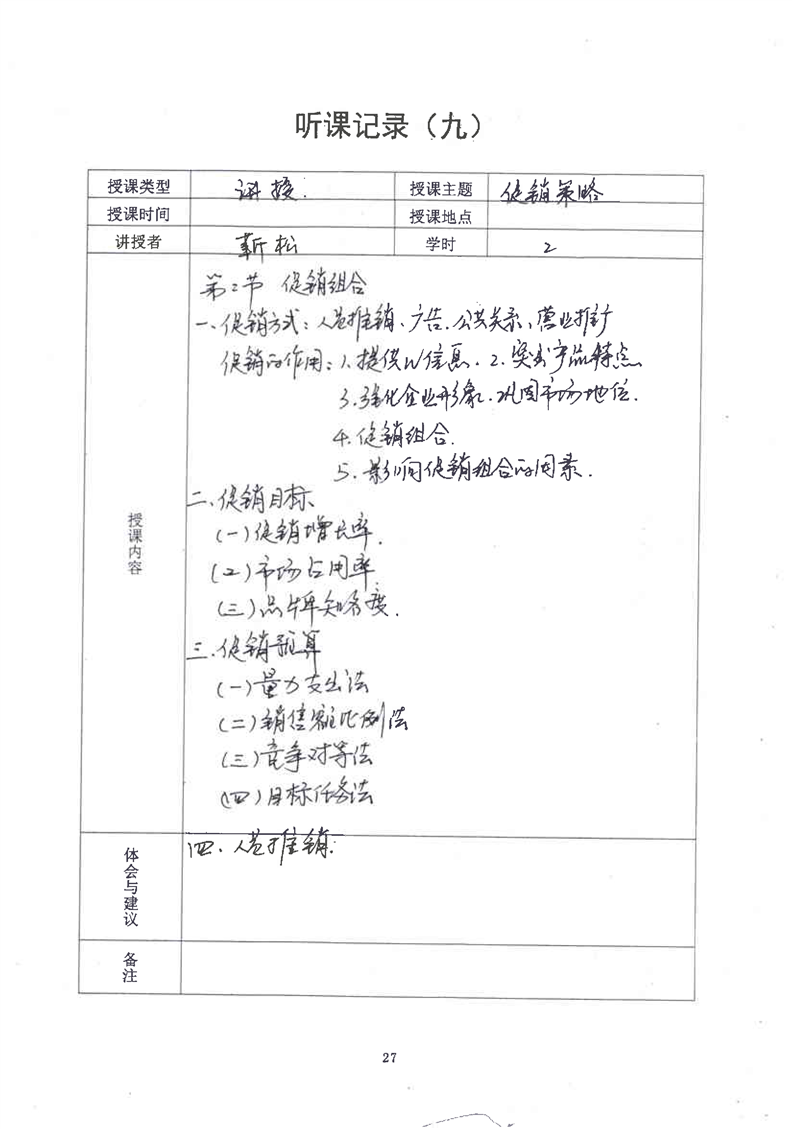 听课记录（九）
授课类型 讲授. 授课主题 促销策略
授课时间 授课地点
讲授者 靳松 学时 2
授课内容
第二节 促销组合
一、促销方式：人员推销、广告、公共关系、营业推广
促销的作用：1.提供信息、2.突出产品特点
3.强化企业形象、巩固市场地位.
4.促销组合.
5.影响促销组合的因素.
二、促销目标
(一)促销增长率.
(二)市场占用率
(三)品牌知名度.
三.促销预算
(一)量力支出法
(二)销售额比例法
(三)竞争对等法
(四)目标任务法
体会与建议
四、人员推销：
备注
27